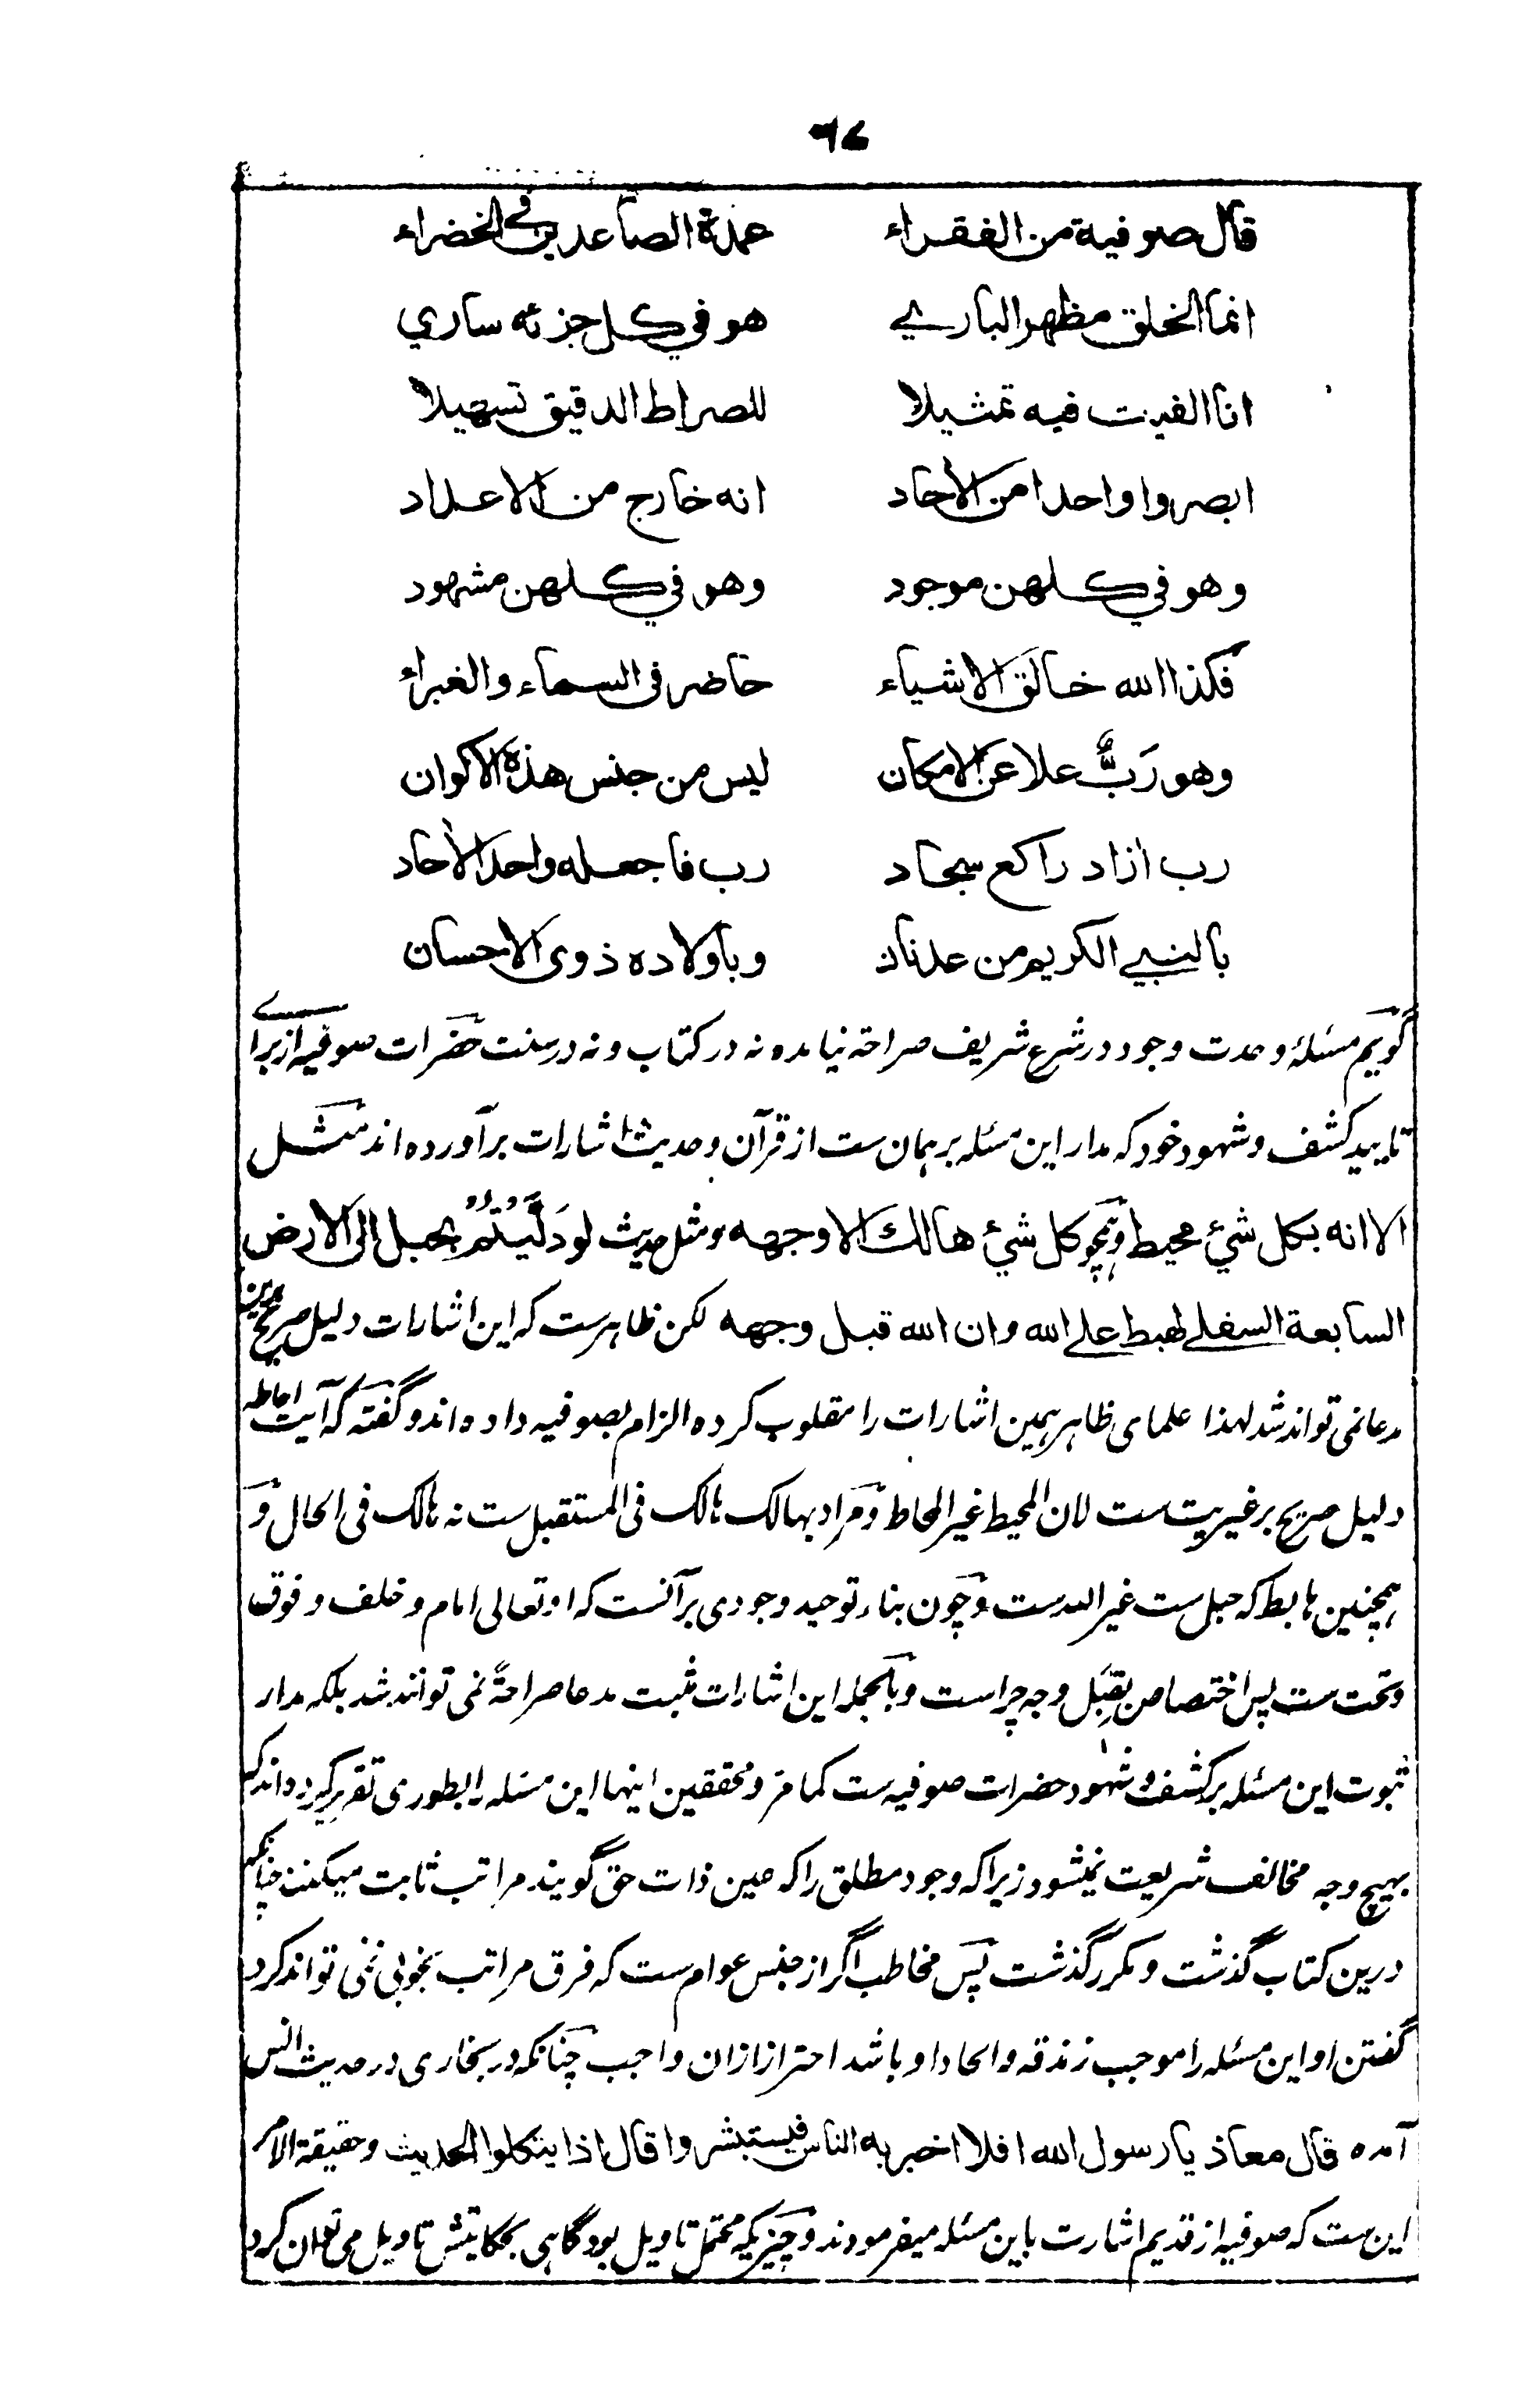 ۹۷
قال صوفية من الفقراء عمدة الصاعدين في الخضراء
انما الخلق مظهر الباري هو في كل جزئه ساري
انا الفيت فيه تمثيلا للصراط الدقيق تسهيلا
ابصروا واحدا من الأحاد انه خارج من الاعداد
وهو في كلهن موجود وهو في كلهن مشهود
فكذا الله خالق الاشياء حاضر في السماء والغبراء
وهو رَبٌّ علا عن الامكان ليس من جنس هذه الاكوان
رب ازاد راكع سجاد رب فاجعله واحد الأحاد
بالنبي الكريم من عدنان وباولاده ذوى الاحسان
گویم مسئلهٔ وحدت وجود در شرع شریف صراحة نیامده نه در کتاب و نه در سنت حضرات صوفیه از برای
تایید کشف و شهود خود که مدار این مسئله بر همان ست از قرآن و حدیث اشارات برآورده اند مثل
الا انه بكل شئ محيط و نحو كل شئ هالك الا وجهه و مثل حدیث لو دَلَّيْتُمْ بحبل الى الارض
السابعة السفلے لهبط علے الله وان الله قبل وجهه لکن ظاهر ست که این اشارات دلیل صریح برین
مدعا نمی تواند شد لهذا علمای ظاهر همین اشارات را مقلوب کرده الزام بصوفیه داده اند و گفته که آیت احاطه
دلیل صریح بر غیریت ست لان المحیط غیر المحاط و مراد بهالک هالک فی المستقبل ست نه هالک فی الحال و
همچنین هابط که حبل ست غیر الله ست و چون بناء توحید وجودی بر آنست که او تعالی امام و خلف و فوق
و تحت ست پس اختصاص بقِبَل وجه چراست و بالجمله این اشارات مثبت مدعا صراحةً نمی توانند شد بلکه مدار
ثبوت این مسئله بر کشف و شهود حضرات صوفیه ست کما مر و محققین اینها این مسئله را بطوری تقریر کرده اند که
بهیچ وجه مخالف شریعت نمیشود زیرا که وجود مطلق را که عین ذات حق گویند مراتب ثابت میکنند چنانکه
درین کتاب گذشت و مکرر گذشت پس مخاطب اگر از جنس عوام ست که فرق مراتب بخوبی نمی تواند کرد
گفتن او این مسئله را موجب زندقه و الحاد او باشد احتراز ازان واجب چنانکه در بخاری در حدیث انس
آمده قال معاذ يا رسول الله افلا اخبر به الناس فيستبشروا قال اذا يتكلوا الحديث و حقیقة الامر
این ست که صوفیه از قدیم اشارت باین مسئله میفرمودند و چیزیکه محتمل تاویل بود گاهی بحکایتش تاویل می توان کرد